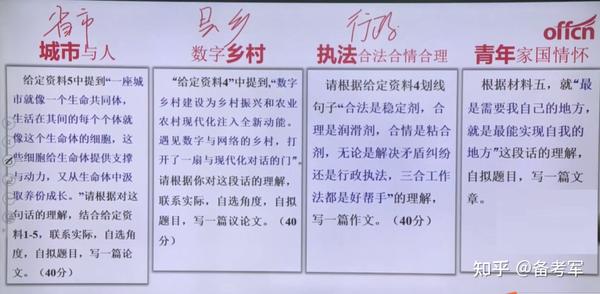 省市
县乡
行政
offcn
城市与人
数字乡村
执法合法合情合理
青年家国情怀
给定资料5中提到“一座城
市就像一个生命共同体，
生活在其间的每个个体就
像这个生命体的细胞，这
些细胞给生命体提供支撑
与动力，又从生命体中汲
取养份成长。”请根据对这
句话的理解，结合给定资
料1-5，联系实际，自选角
度，自拟题目，写一篇论
文。（40分）
“给定资料4”中提到，“数字
乡村建设为乡村振兴和农业
农村现代化注入全新动能。
遇见数字与网络的乡村，打
开了一扇与现代化对话的门”。
请根据你对这段话的理解，
联系实际，自选角度，自拟
题目，写一篇议论文。（40
分）
请根据给定资料4划线
句子“合法是稳定剂，合
理是润滑剂，合情是粘合
剂，无论是解决矛盾纠纷
还是行政执法，三合工作
法都是好帮手”的理解，
写一篇作文。（40分）
根据材料五，就“最
是需要我自己的地方，
就是最能实现自我的
地方”这段话的理解，
自拟题目，写一篇文
章。
知乎 @备考军